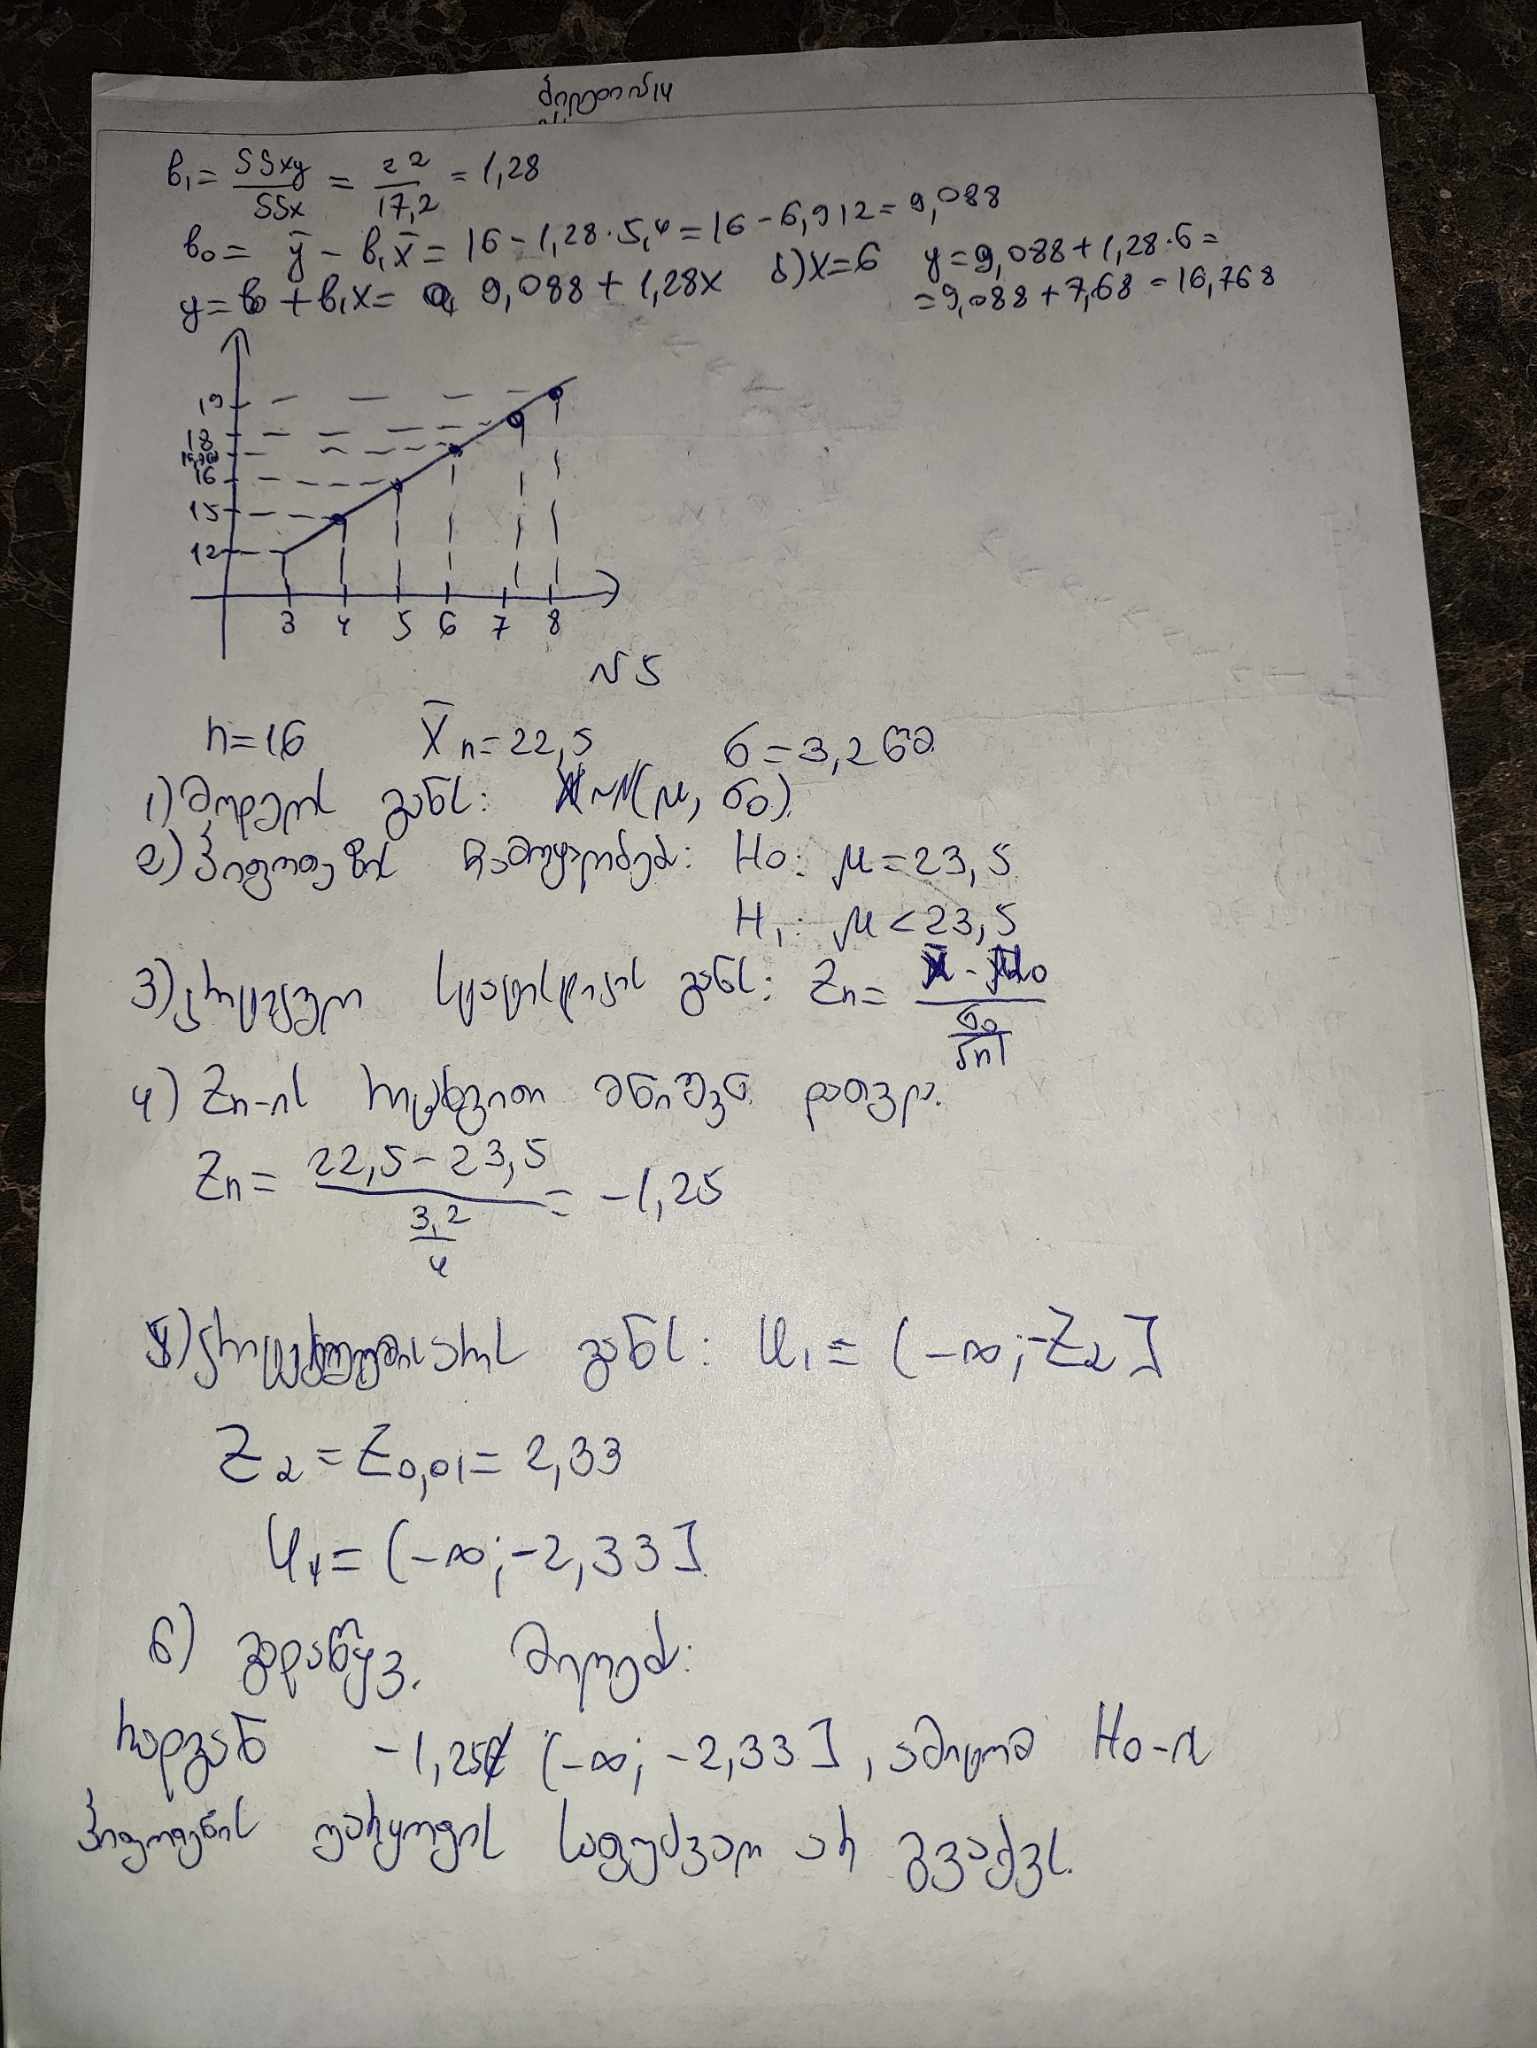 ბილეთი N14
b₁ = SSxy/SSx = 22/17,2 = 1,28
b₀ = ȳ - b₁x̄ = 16 - 1,28·5,4 = 16 - 6,912 = 9,088
y = b₀ + b₁x = 9,088 + 1,28x ბ) x=6 y = 9,088 + 1,28·6 =
= 9,088 + 7,68 = 16,768
19
18
16,768
16
15
12
3 4 5 6 7 8
N 5
n=16 X̄n=22,5 σ=3,2 წთ
1) მოდელის განს: X~N(μ, σ₀).
2) ჰიპოთეზის ჩამოყალიბება: H₀: μ=23,5
H₁: μ<23,5
3) კრიტერიუმ. სტატისტიკის განს: Zn = (x̄ - μ₀)/(σ₀/√n)
4) Zn-ის რიცხვითი მნიშვნ. დათვლა.
Zn = (22,5 - 23,5)/(3,2/4) = -1,25
5) კრიტიკული არის განს: U₁ = (-∞; -Zα]
Zα = Z0,01 = 2,33
U₁ = (-∞; -2,33]
6) გადაწყვ. მიღება:
რადგან -1,25∉ (-∞; -2,33], ამიტომ H₀-ის
ჰიპოთეზის უარყოფის საფუძველი არ გვაქვს.